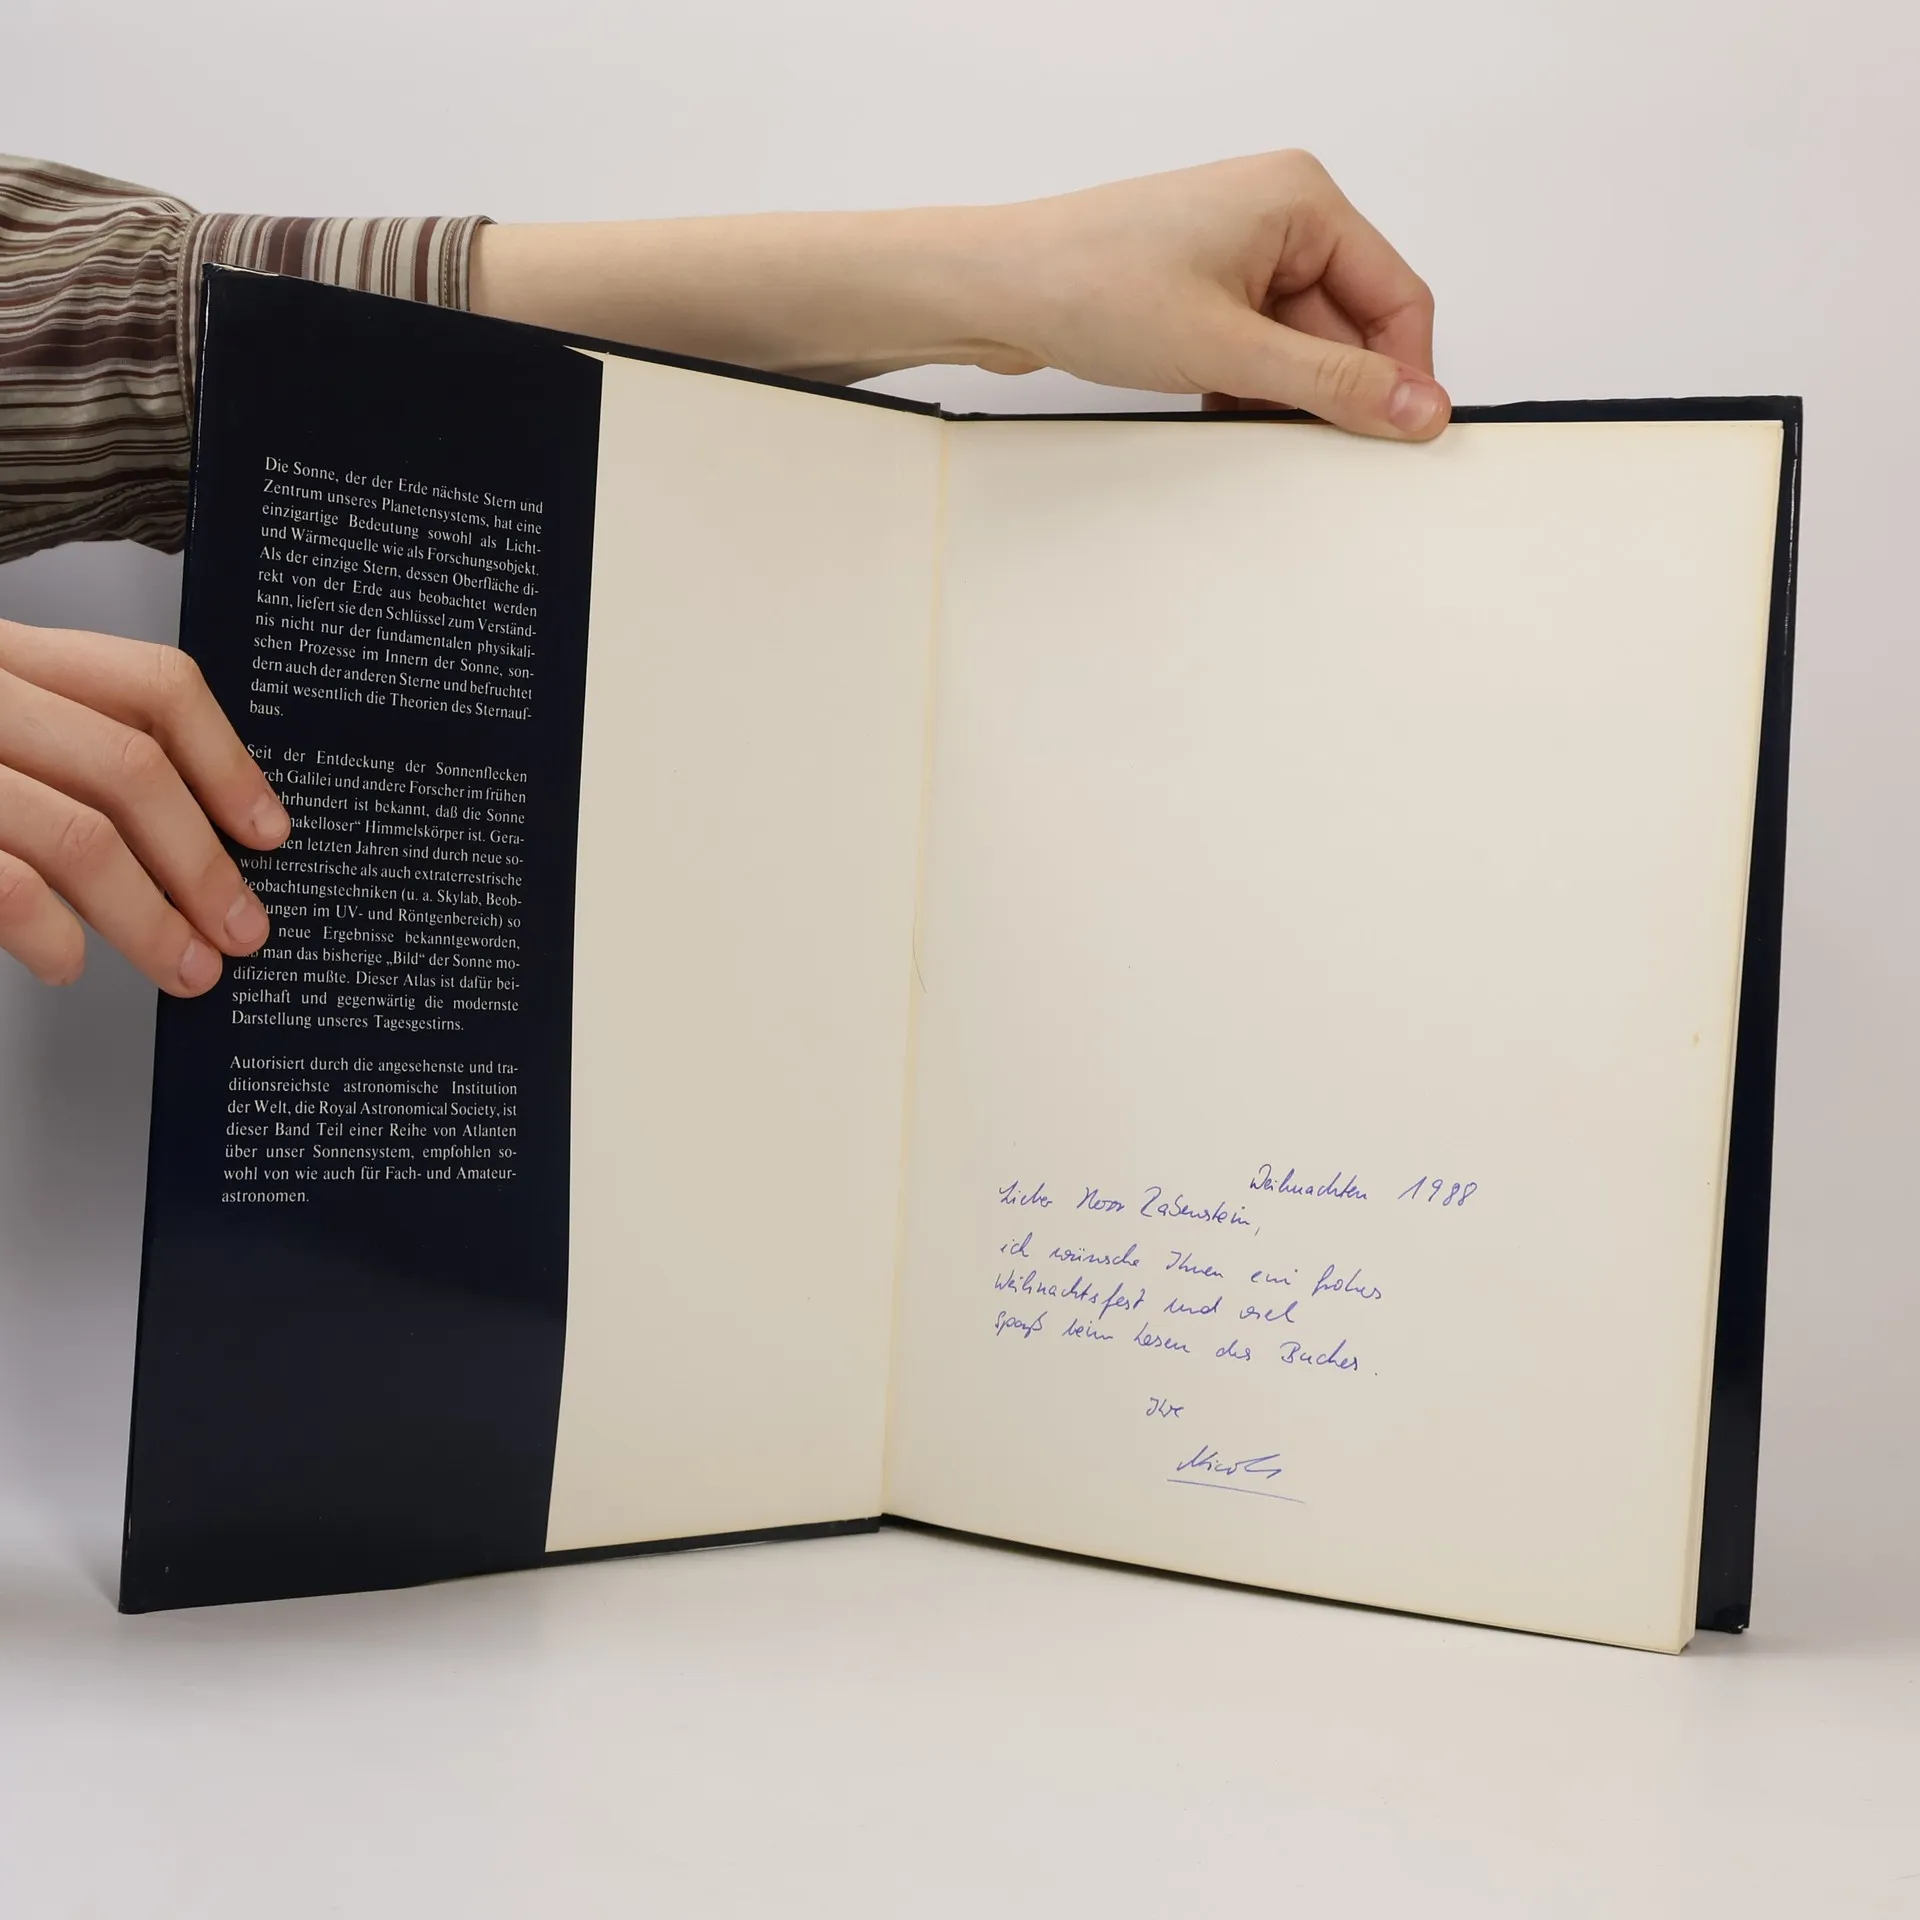 Die Sonne, der der Erde nächste Stern und
Zentrum unseres Planetensystems, hat eine
einzigartige Bedeutung sowohl als Licht-
und Wärmequelle wie als Forschungsobjekt.
Als der einzige Stern, dessen Oberfläche di-
rekt von der Erde aus beobachtet werden
kann, liefert sie den Schlüssel zum Verständ-
nis nicht nur der fundamentalen physikali-
schen Prozesse im Innern der Sonne, son-
dern auch der anderen Sterne und befruchtet
damit wesentlich die Theorien des Sternauf-
baus.
Seit der Entdeckung der Sonnenflecken
rch Galilei und andere Forscher im frühen
ahrhundert ist bekannt, daß die Sonne
makelloser“ Himmelskörper ist. Gera-
den letzten Jahren sind durch neue so-
wohl terrestrische als auch extraterrestrische
Beobachtungstechniken (u. a. Skylab, Beob-
ungen im UV- und Röntgenbereich) so
neue Ergebnisse bekanntgeworden,
man das bisherige „Bild“ der Sonne mo-
difizieren mußte. Dieser Atlas ist dafür bei-
spielhaft und gegenwärtig die modernste
Darstellung unseres Tagesgestirns.
Autorisiert durch die angesehenste und tra-
ditionsreichste astronomische Institution
der Welt, die Royal Astronomical Society, ist
dieser Band Teil einer Reihe von Atlanten
über unser Sonnensystem, empfohlen so-
wohl von wie auch für Fach- und Amateur-
astronomen.
Weihnachten 1988
Lieber Herr
ich wünsche Ihnen ein frohes
Weihnachtsfest und viel
Spaß beim Lesen des Buches.
Ihre